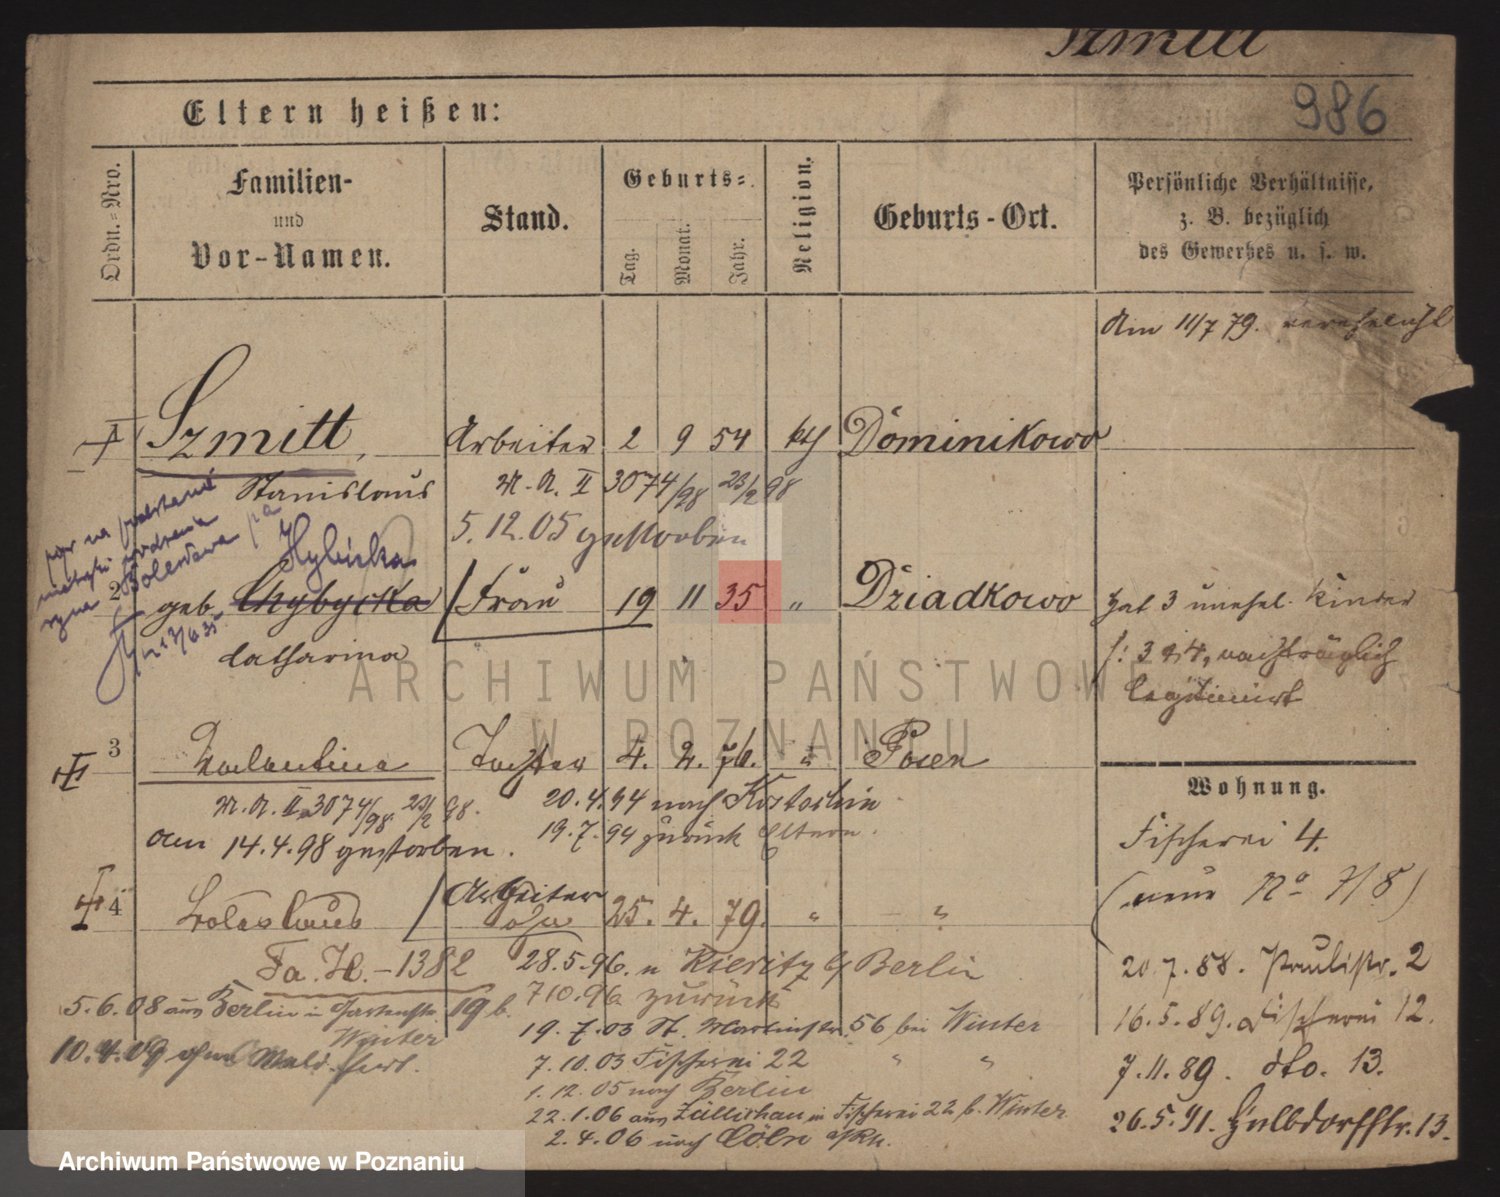 Szmitt
986
Eltern heißen:
Ordn.=Nro.
Familien-
und
Vor-Namen.
Stand.
Geburts=
Tag.
Monat.
Jahr.
Religion.
Geburts-Ort.
Persönliche Verhältnisse,
z. B. bezüglich
des Gewerbes u. s. w.
Am 11/7 79. verehelicht
Szmitt, Arbeiter 2 9 54 kth Dominikowo
Stanislaus M. A. II 3074/98 23/2 98
5.12.05 gestorben
na
Bolesława
Hybicka
2 geb. Chybycka Frau 19 11 35 " Dziadkowo
Catharina
hat 3 unehel. Kinder
f: 3 & 4, nachträglich
legitimirt
3 Valentina Tochter 4. 2. 76. " Posen
M. A. II 3074/98 23/2 98.
20.4.94 nach
19.7.94 zurück Eltern.
am 14.4.98 gestorben.
Wohnung.
Fischerei 4.
(neue No 7/8)
4 Boleslaus Arbeiter 25. 4. 79. " "
Sohn
Fa. H. - 1382
28.5.96. n Kieritz b/ Berlin
7 10.96 zurück
5.6.08 aus Berlin in Gartenstr. 19 b.
Winter
10.4.09 ohne Meld. fort.
19.7.03 St. Martinstr. 56 bei Winter
7.10.03 Fischerei 22 " "
1.12.05 nach Berlin
22.1.06 aus Züllichau in Fischerei 22 b. Winter
2.4.06 nach Cöln a/Rh.
20 7.88. Paulistr. 2
16.5.89. Fischerei 12.
7.11.89. dto. 13.
26.5.91. Halbdorfstr. 13.
ARCHIWUM PAŃSTWOWE
W POZNANIU
Archiwum Państwowe w Poznaniu